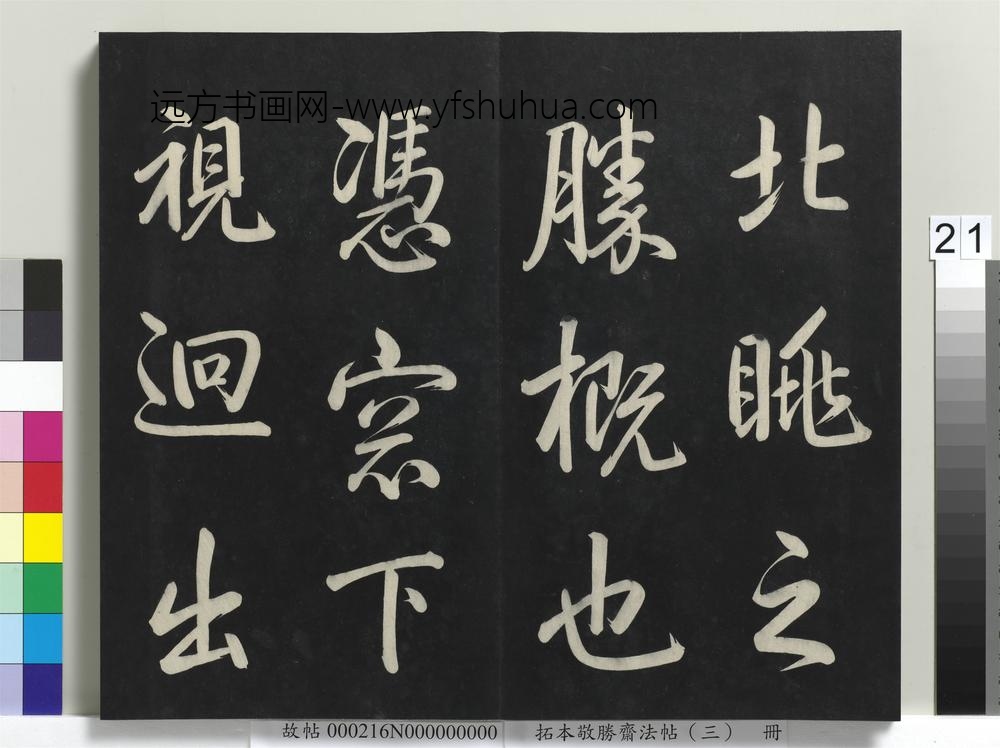 远方书画网-www.yfshuhua.com
北眺之
勝概也
馮窓下
視迥出
21
故帖 000216N000000000 拓本敬勝齋法帖（三） 冊